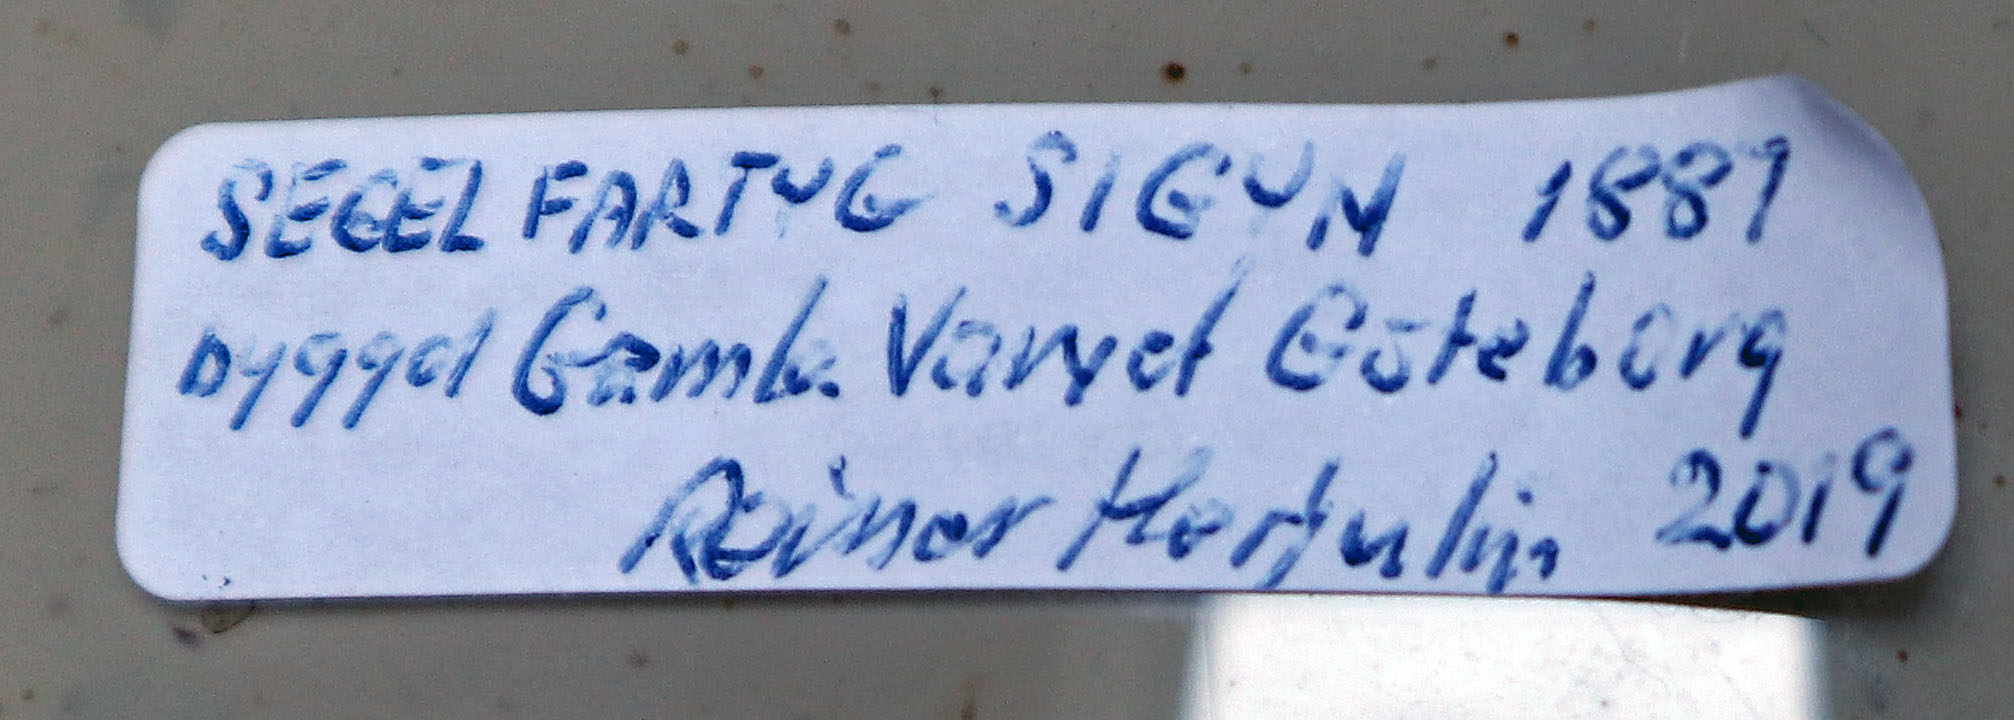 SEGELFARTYG SIGYN 1887
byggd Gamla Varvet Göteborg
Reiner Herjulin 2019